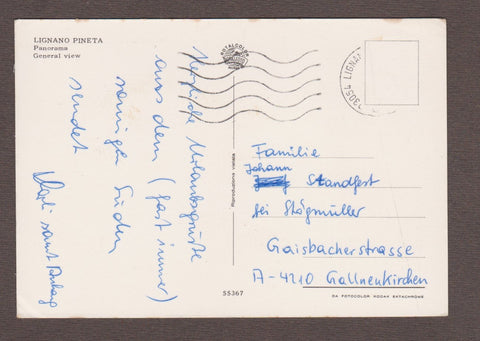 LIGNANO PINETA
Panorama
General view
Herzliche Urlaubsgrüße
aus dem (fast immer)
sonnigen Süden
sendet
samt Anhang
ROTALCOLOR
33054 LIGNA
Riproduzione vietata
Familie
Johann
Standfest
bei Stögmüller
Gaisbacherstrasse
A-4210 Gallneukirchen
55367
DA FOTOCOLOR KODAK EKTACHROME